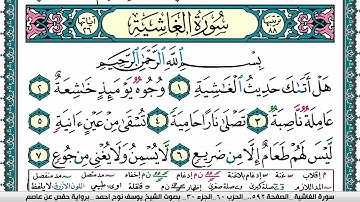 سُورَةُ الْغَاشِيَةِ
بِسْمِ اللَّهِ الرَّحْمَٰنِ الرَّحِيمِ
هَلْ أَتَىٰكَ حَدِيثُ الْغَٰشِيَةِ ١ وُجُوهٌ يَوْمَئِذٍ خَٰشِعَةٌ ٢
عَامِلَةٌ نَّاصِبَةٌ ٣ تَصْلَىٰ نَارًا حَامِيَةً ٤ تُسْقَىٰ مِنْ عَيْنٍ ءَانِيَةٍ ٥
لَّيْسَ لَهُمْ طَعَامٌ إِلَّا مِن ضَرِيعٍ ٦ لَّا يُسْمِنُ وَلَا يُغْنِي مِن جُوعٍ ٧
سورة الغاشية - الصفحة ٥٩٢ - الحزب ٦٠ - الجزء ٣٠ - بصوت الشيخ يوسف نوح احمد - برواية حفص عن عاصم